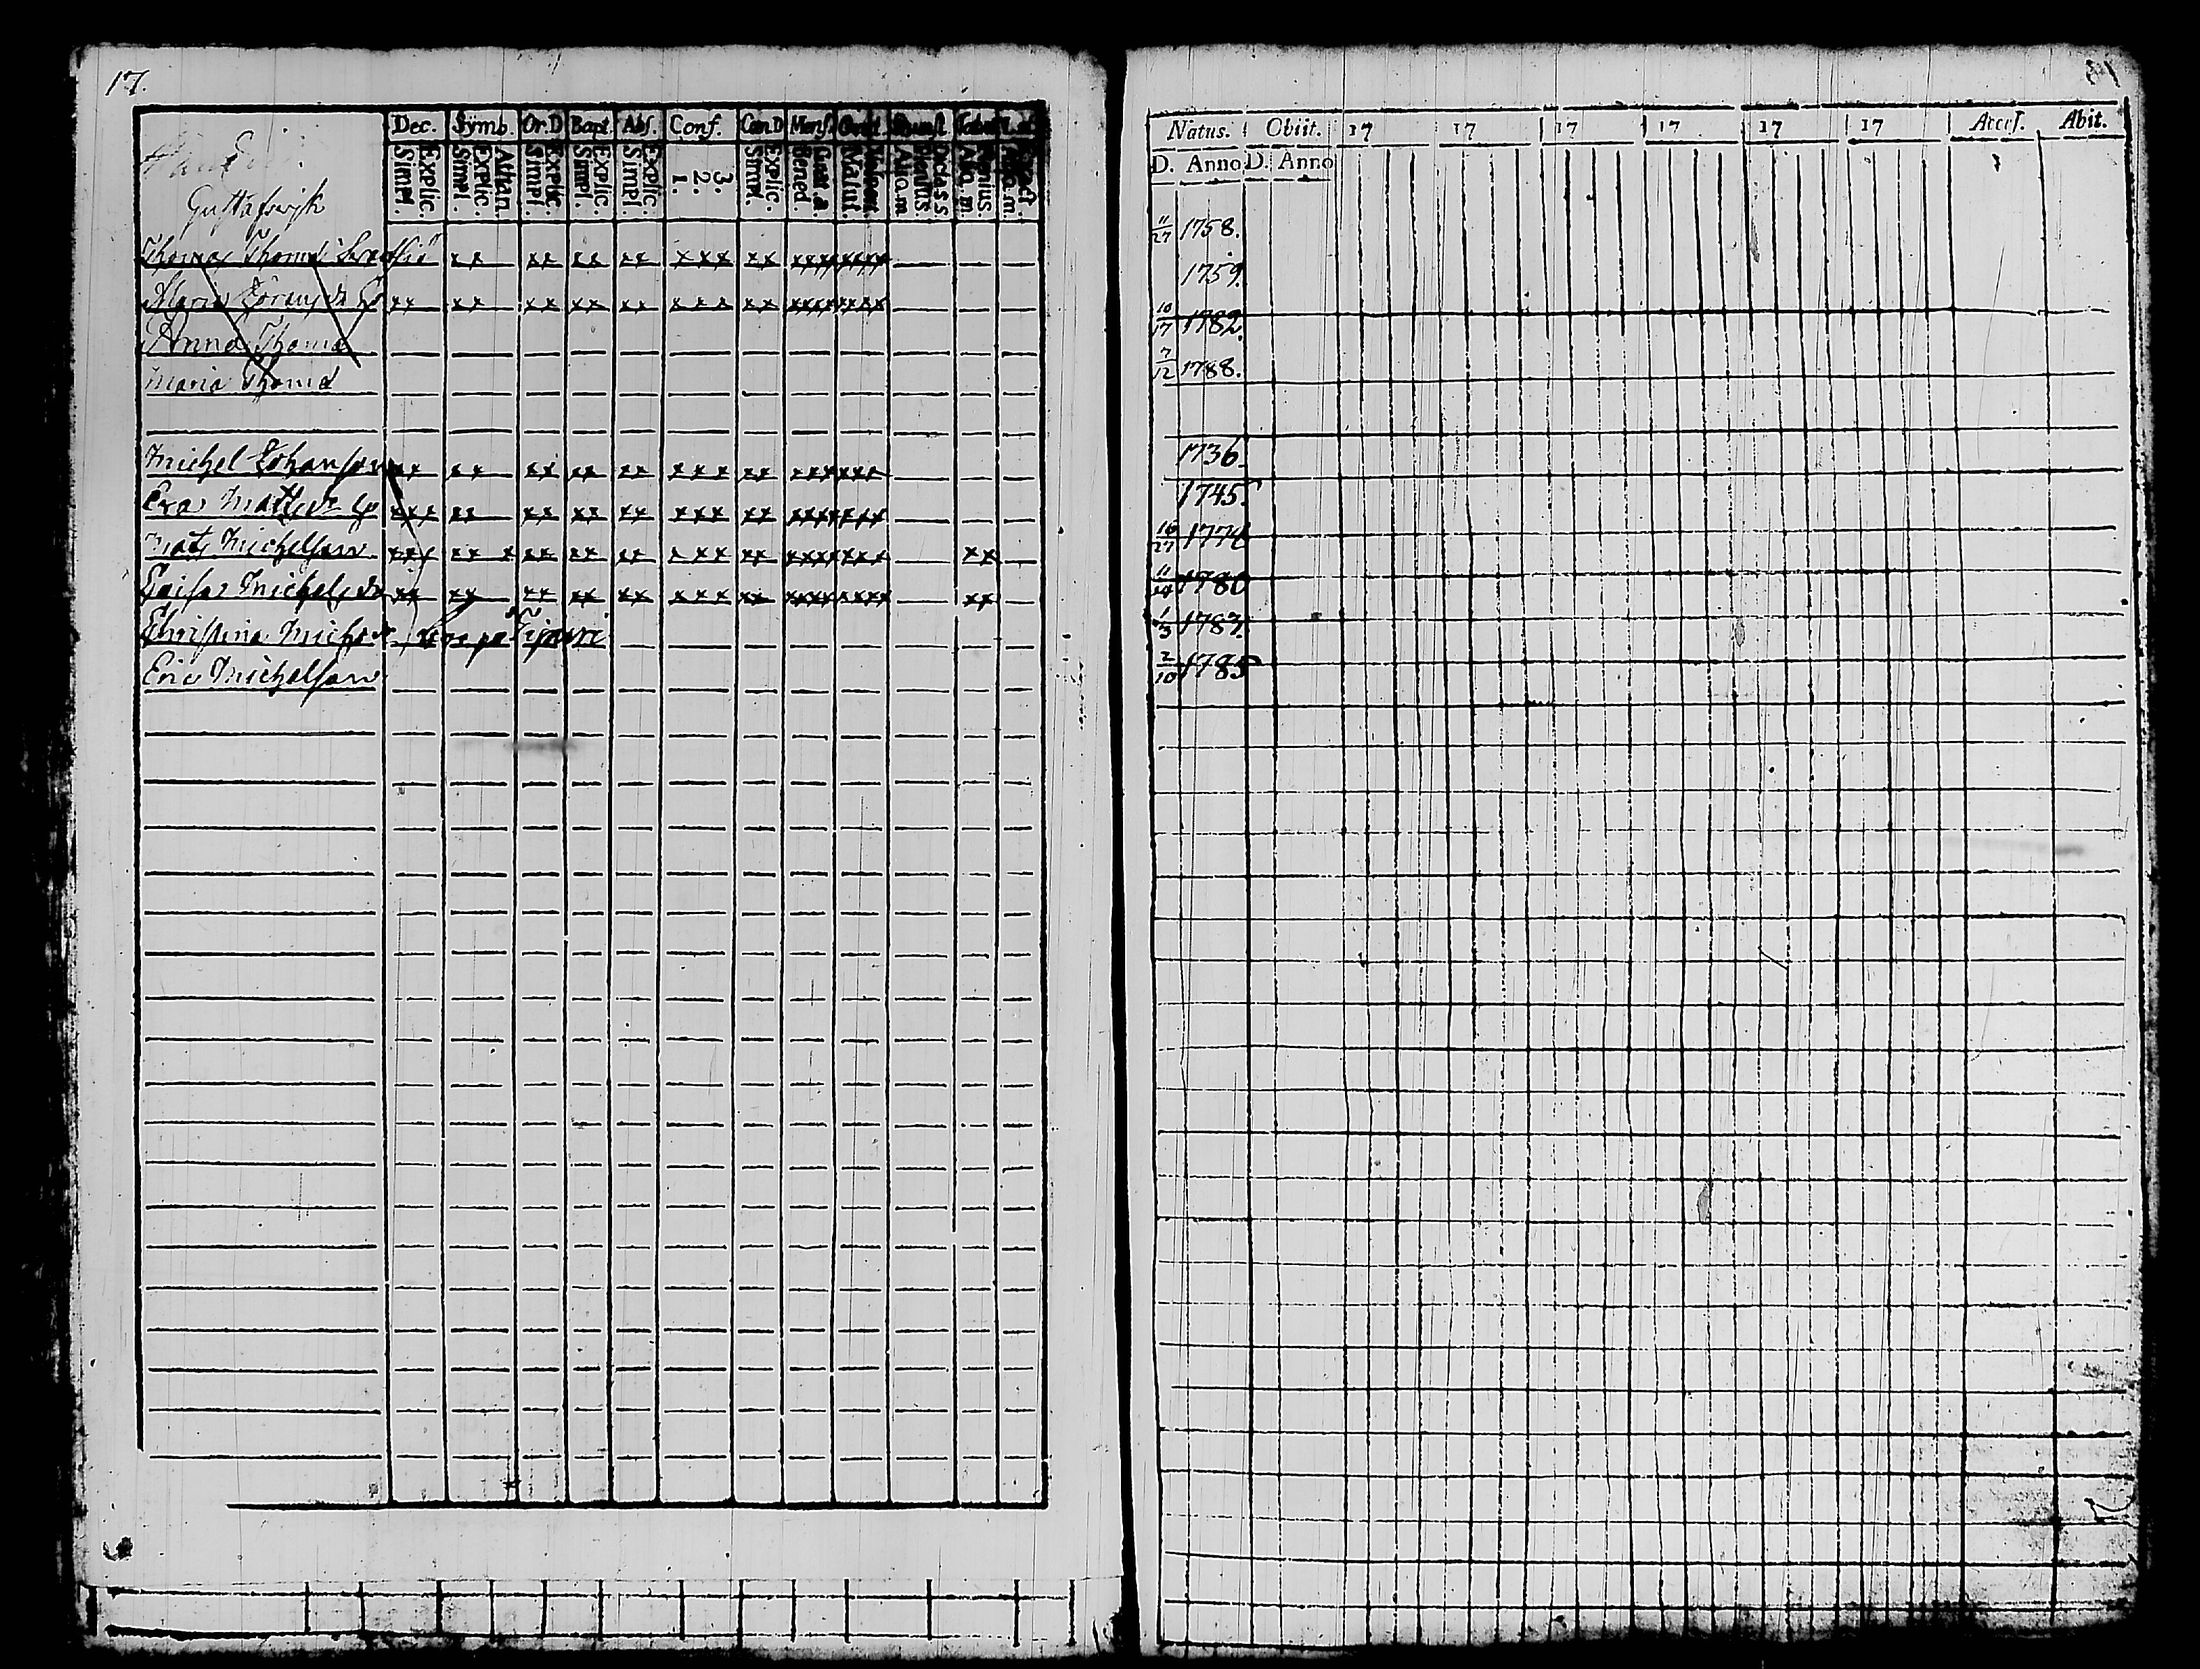 17.
Dec. Symb. Or.D Bapt. Abs. Conf. Can D Mens.
Explic. Simpl. Athan. Explic. Simpl. Explic. Simpl. Explic. Simpl. Explic. Simpl. 3. 2. 1. Explic. Simpl. Bened. Alia.m
Gustafswijk
Thomas Thomæ
xx xx xx xx xxx xx xxxx xxxx
Maria Göransdr
xx xx xx xx xx xxx xx xxxx xxxx
Anna Thomæ
Maria Thomæ
Michel Johansson
xx xx xx xx xx xxx xx xxx xxx
Eva Mattsdr
xxx xx xx xx xx xxx xx xxxx xxx
Mats Michelsson
xxx xx x xx xx xx xxx xx xxxx xxx xx
Caisa Michelsdr
xx xx xx xx xx xxx xx xxxx xxxx xx
Christina Michelsdr
Eric Michelsson
Natus. Obiit. 17 17 17 17 17 17 Abit.
D. Anno D. Anno
11/27 1758.
1759.
10/17 1782.
7/12 1788.
1736.
1745.
16/27
11/14 1780
1/3 1783.
2/10 1785